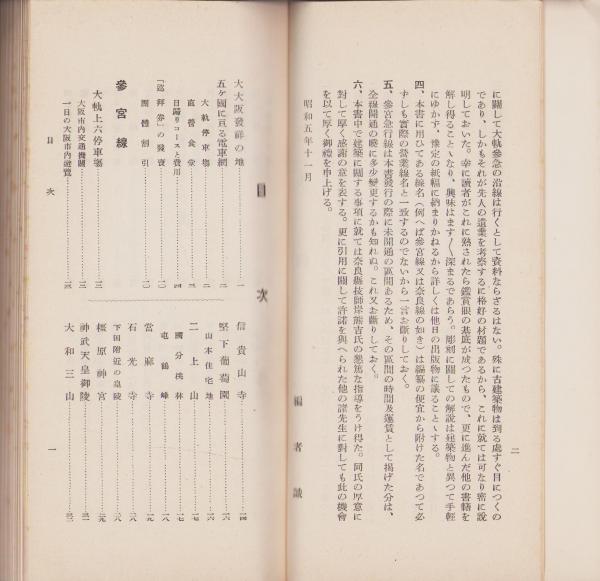 二
に關して大軌參急の沿線は行くとして資料ならざるはない。殊に古建築物は到る處すぐ目につくの
であり、しかもそれが先人の遺業を考察するに格好の材題であるから、これに就ては可なり密に說
明しておいた。幸に讀者がこれに熟されたら鑑賞眼の基底が成つたもので、更に進んだ他の書籍を
解し得ることゝなり、興味はます〳〵深まるであらう。彫刻に關しての解說は建築物と異つて手輕
にゆかず、豫定の紙幅に納まりかねるから詳しくは他日の出版物に讓ることゝする。
四、本書に用ひてある線名(例へば參宮線又は奈良線の如き)は編纂の便宜から附けた名であつて必
ずしも實際の營業線名と一致するのでないから一言お斷りしておく。
五、參宮急行線は本書發行の際に未開通の區間あるため、その區間の時間及運賃として揭げた分は、
全線開通の曉に多少變更するかも知れぬ。これ又お斷りしておく。
六、本書中で建築に關する事項に就ては奈良縣技師岸熊吉氏の懇篤な指導をうけ得た。同氏の厚意に
對して厚く感謝の意を表する。更に引用に關して許諾を與へられた他の諸先生に對しても此の機會
を以て厚く御禮を申上げる。
昭和五年十一月
編者識
目次
大大阪發祥の地……一
五ケ國に亘る電車網……二
大軌停車場……二
直營食堂……三
日歸りコースと費用……四
「巡拜券」の發賣……一〇
團體割引……一〇
參宮線
大軌上六停車場……一三
大阪市內交通機關……一三
一日の大阪市內遊覽……一三
信貴山寺……一四
堅下葡萄園……一六
山本住宅地……一六
二上山……一七
國分桃林……一七
屯鶴峰……一八
當麻寺……一九
石光寺……二八
下田附近の皇陵……二八
橿原神宮……二九
神武天皇御陵……三一
大和三山……三三
目次
一